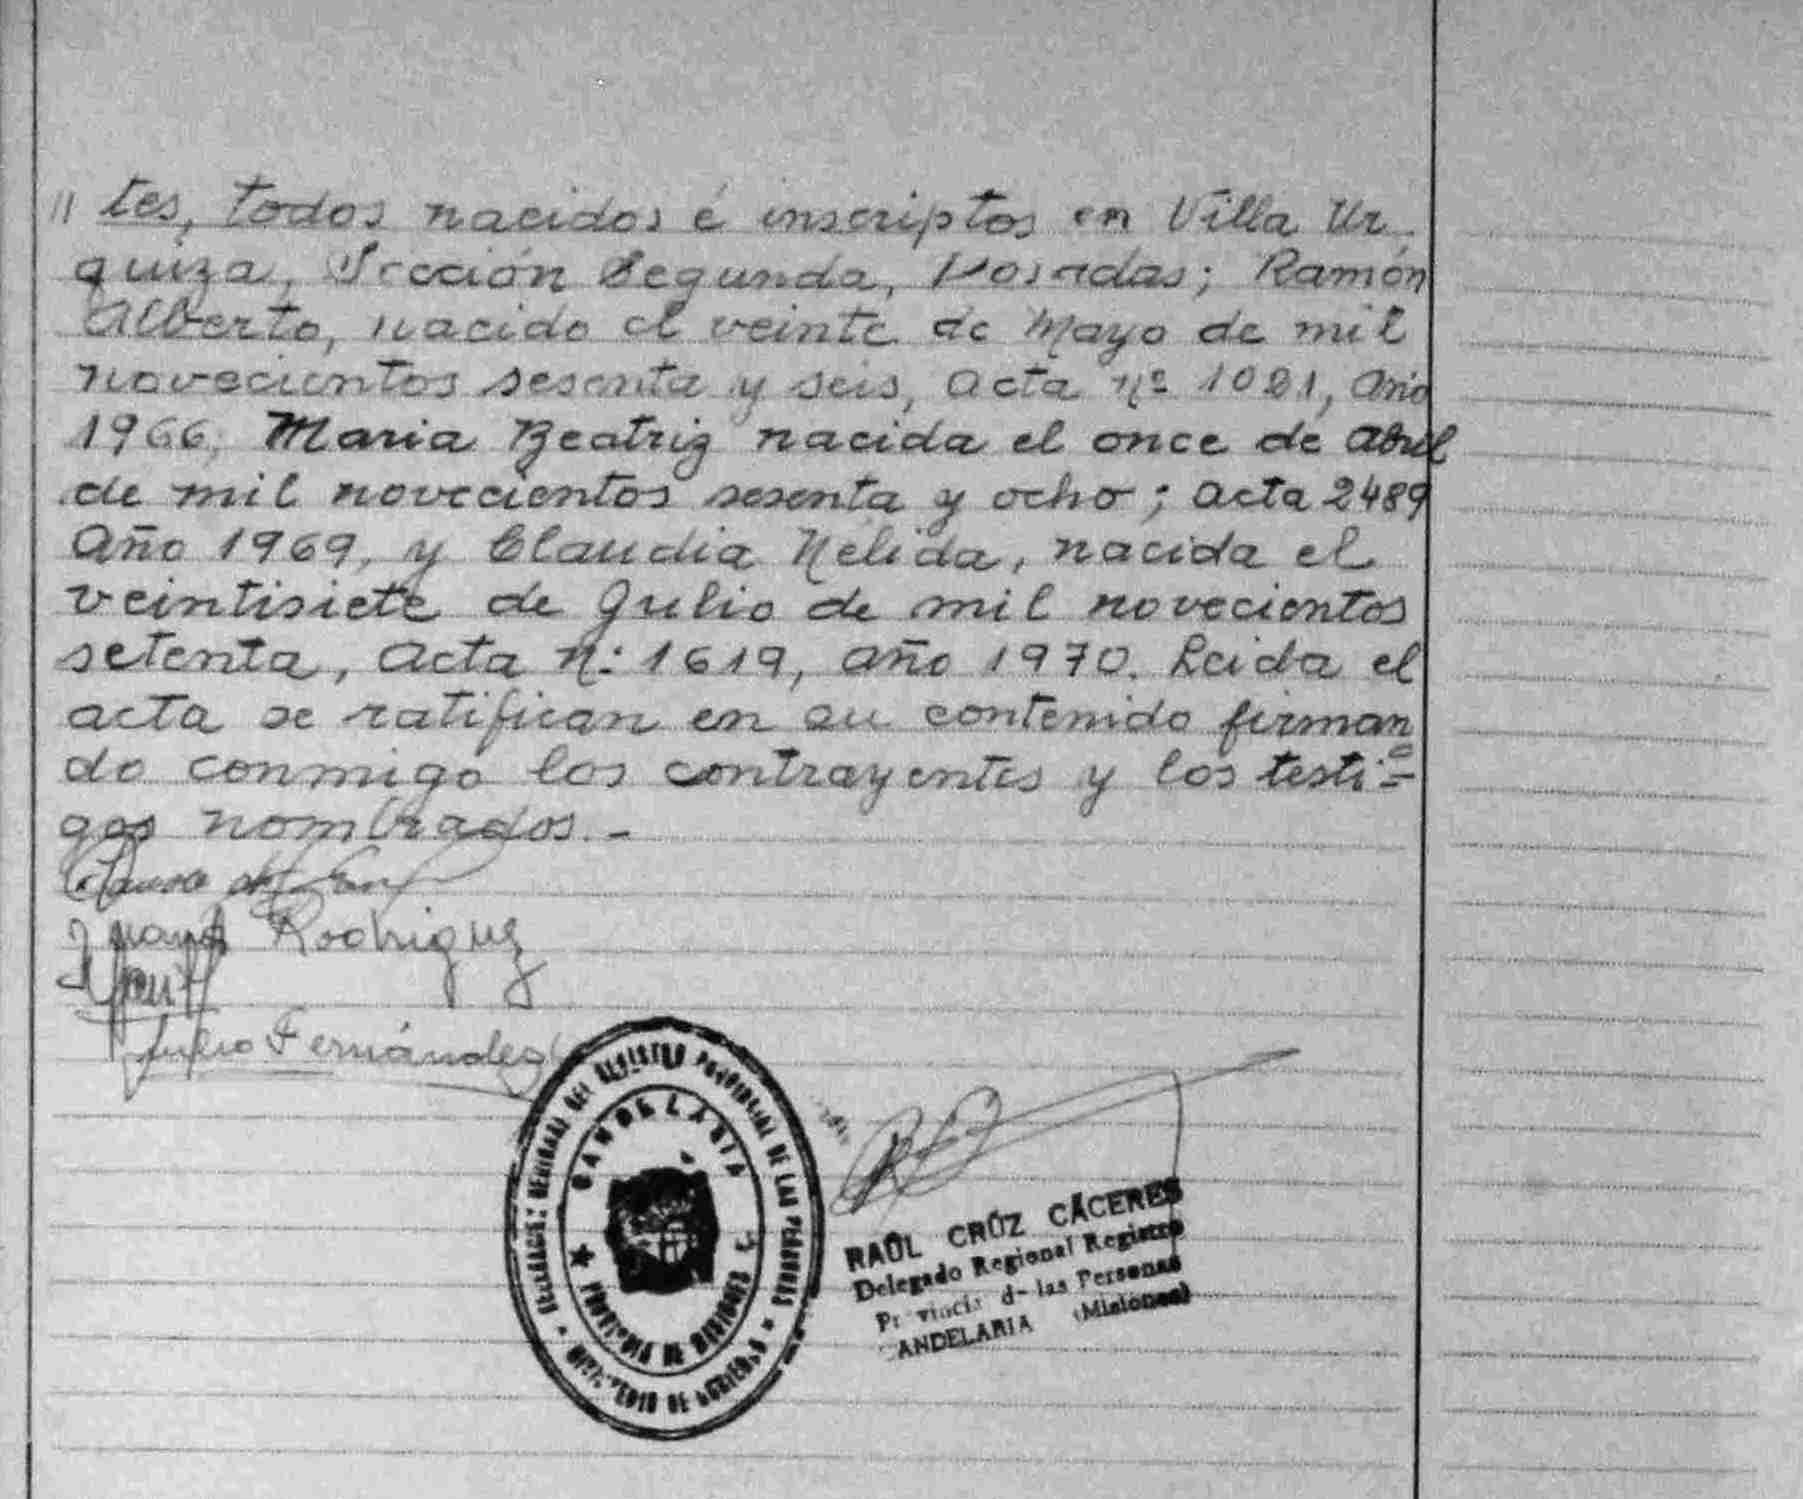 " tes, todos nacidos é inscriptos en Villa Ur
quiza, Sección Segunda, Posadas; Ramón
Alberto, nacido el veinte de Mayo de mil
novecientos sesenta y seis, Acta nº 1021, Año
1966, Maria Beatriz nacida el once de Abril
de mil novecientos sesenta y ocho; Acta 2489
Año 1969, y Claudia Nélida, nacida el
veintisiete de Julio de mil novecientos
setenta, Acta N: 1619, Año 1970. Leida el
acta se ratifican en su contenido firman
do conmigo los contrayentes y los testi=
gos nombrados.-
Rodriguez
Julio Fernández
DEL REGISTRO PROVINCIAL DE LAS PERSONAS
CANDELARIA
PROVINCIA DE MISIONES
MINISTERIO DE GOBIERNO
RAÚL CRÚZ CÁCERES
Delegado Regional Registro
Provincial de las Personas
CANDELARIA (Misiones)